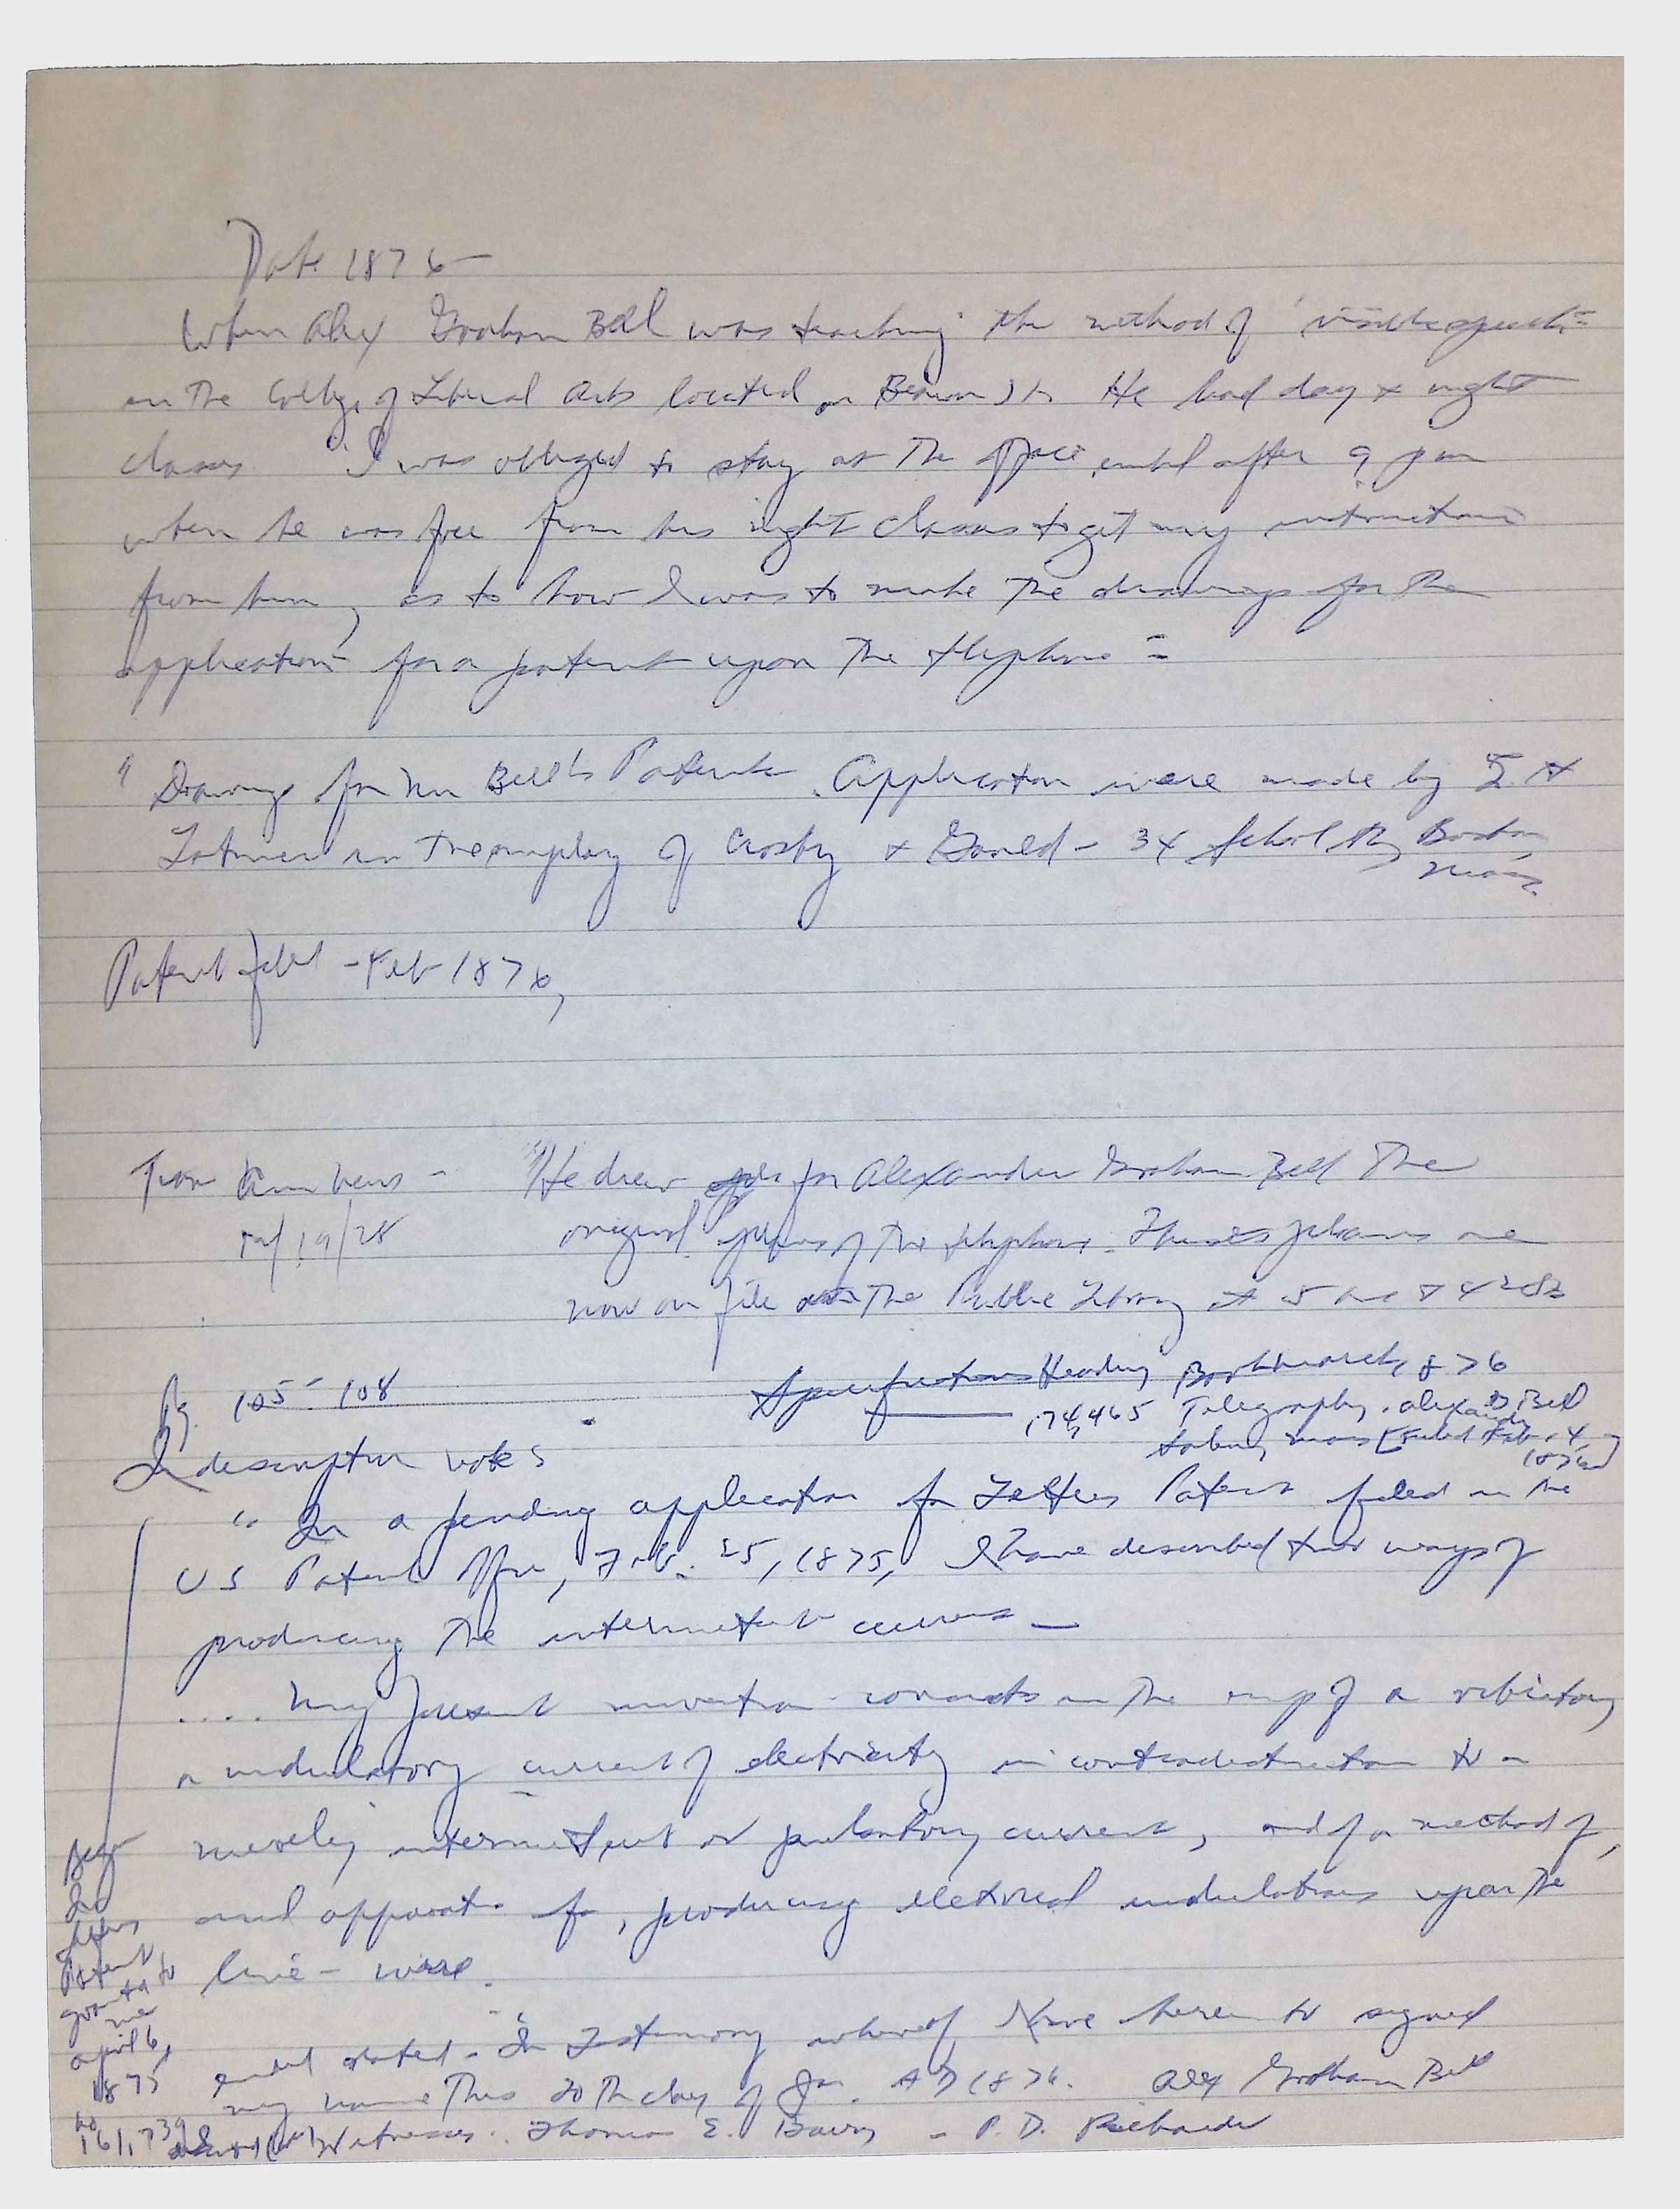 Date 1876 -
When Alex Graham Bell was teaching the method of 'visible speech'
in the College of Liberal Arts located on Beacon St. He had day & night
classes. I was obliged to stay at the office until after 9 pm
when he was free from his night classes to get my instructions
from him, as to how I was to make the drawings for the
application for a patent upon the telephone -
" Drawings for Mr Bell's Patent Application were made by L. H
Latimer in the employ of Crosby & Gould - 34 School St, Boston
Mass.
Patent filed - Feb 1876,
From Am News -
19/28
"He drew for Alexander Graham Bell the
original plans of the telephone. These plans are
now on file at the Public Library at 5 Ave & 42 St
Pg. 105 - 108
Specifications Heading March 1876
174,465 Telegraphy. Alexander G. Bell
Mass [Filed Feb. 14
1876]
In description notes
" In a pending application for Letters Patent filed in the
US Patent Office, Feb. 25, 1875, I have described two ways of
producing the intermittent current -
.... My present invention consists in the of a vibratory
or undulatory current of electricity in contradistinction to a
merely intermittent or pulsatory current, and of a method of,
and apparatus for, producing electrical undulations upon the
line - wire.
In
letters
Patent
granted to
me
April 6,
1875
No
161,739
and stated - "In Testimony whereof I have hereunto signed
my name this 20th day of Jan. AD 1876. Alex Graham Bell
Witnesses. Thomas E. Barry - P. D. Richards